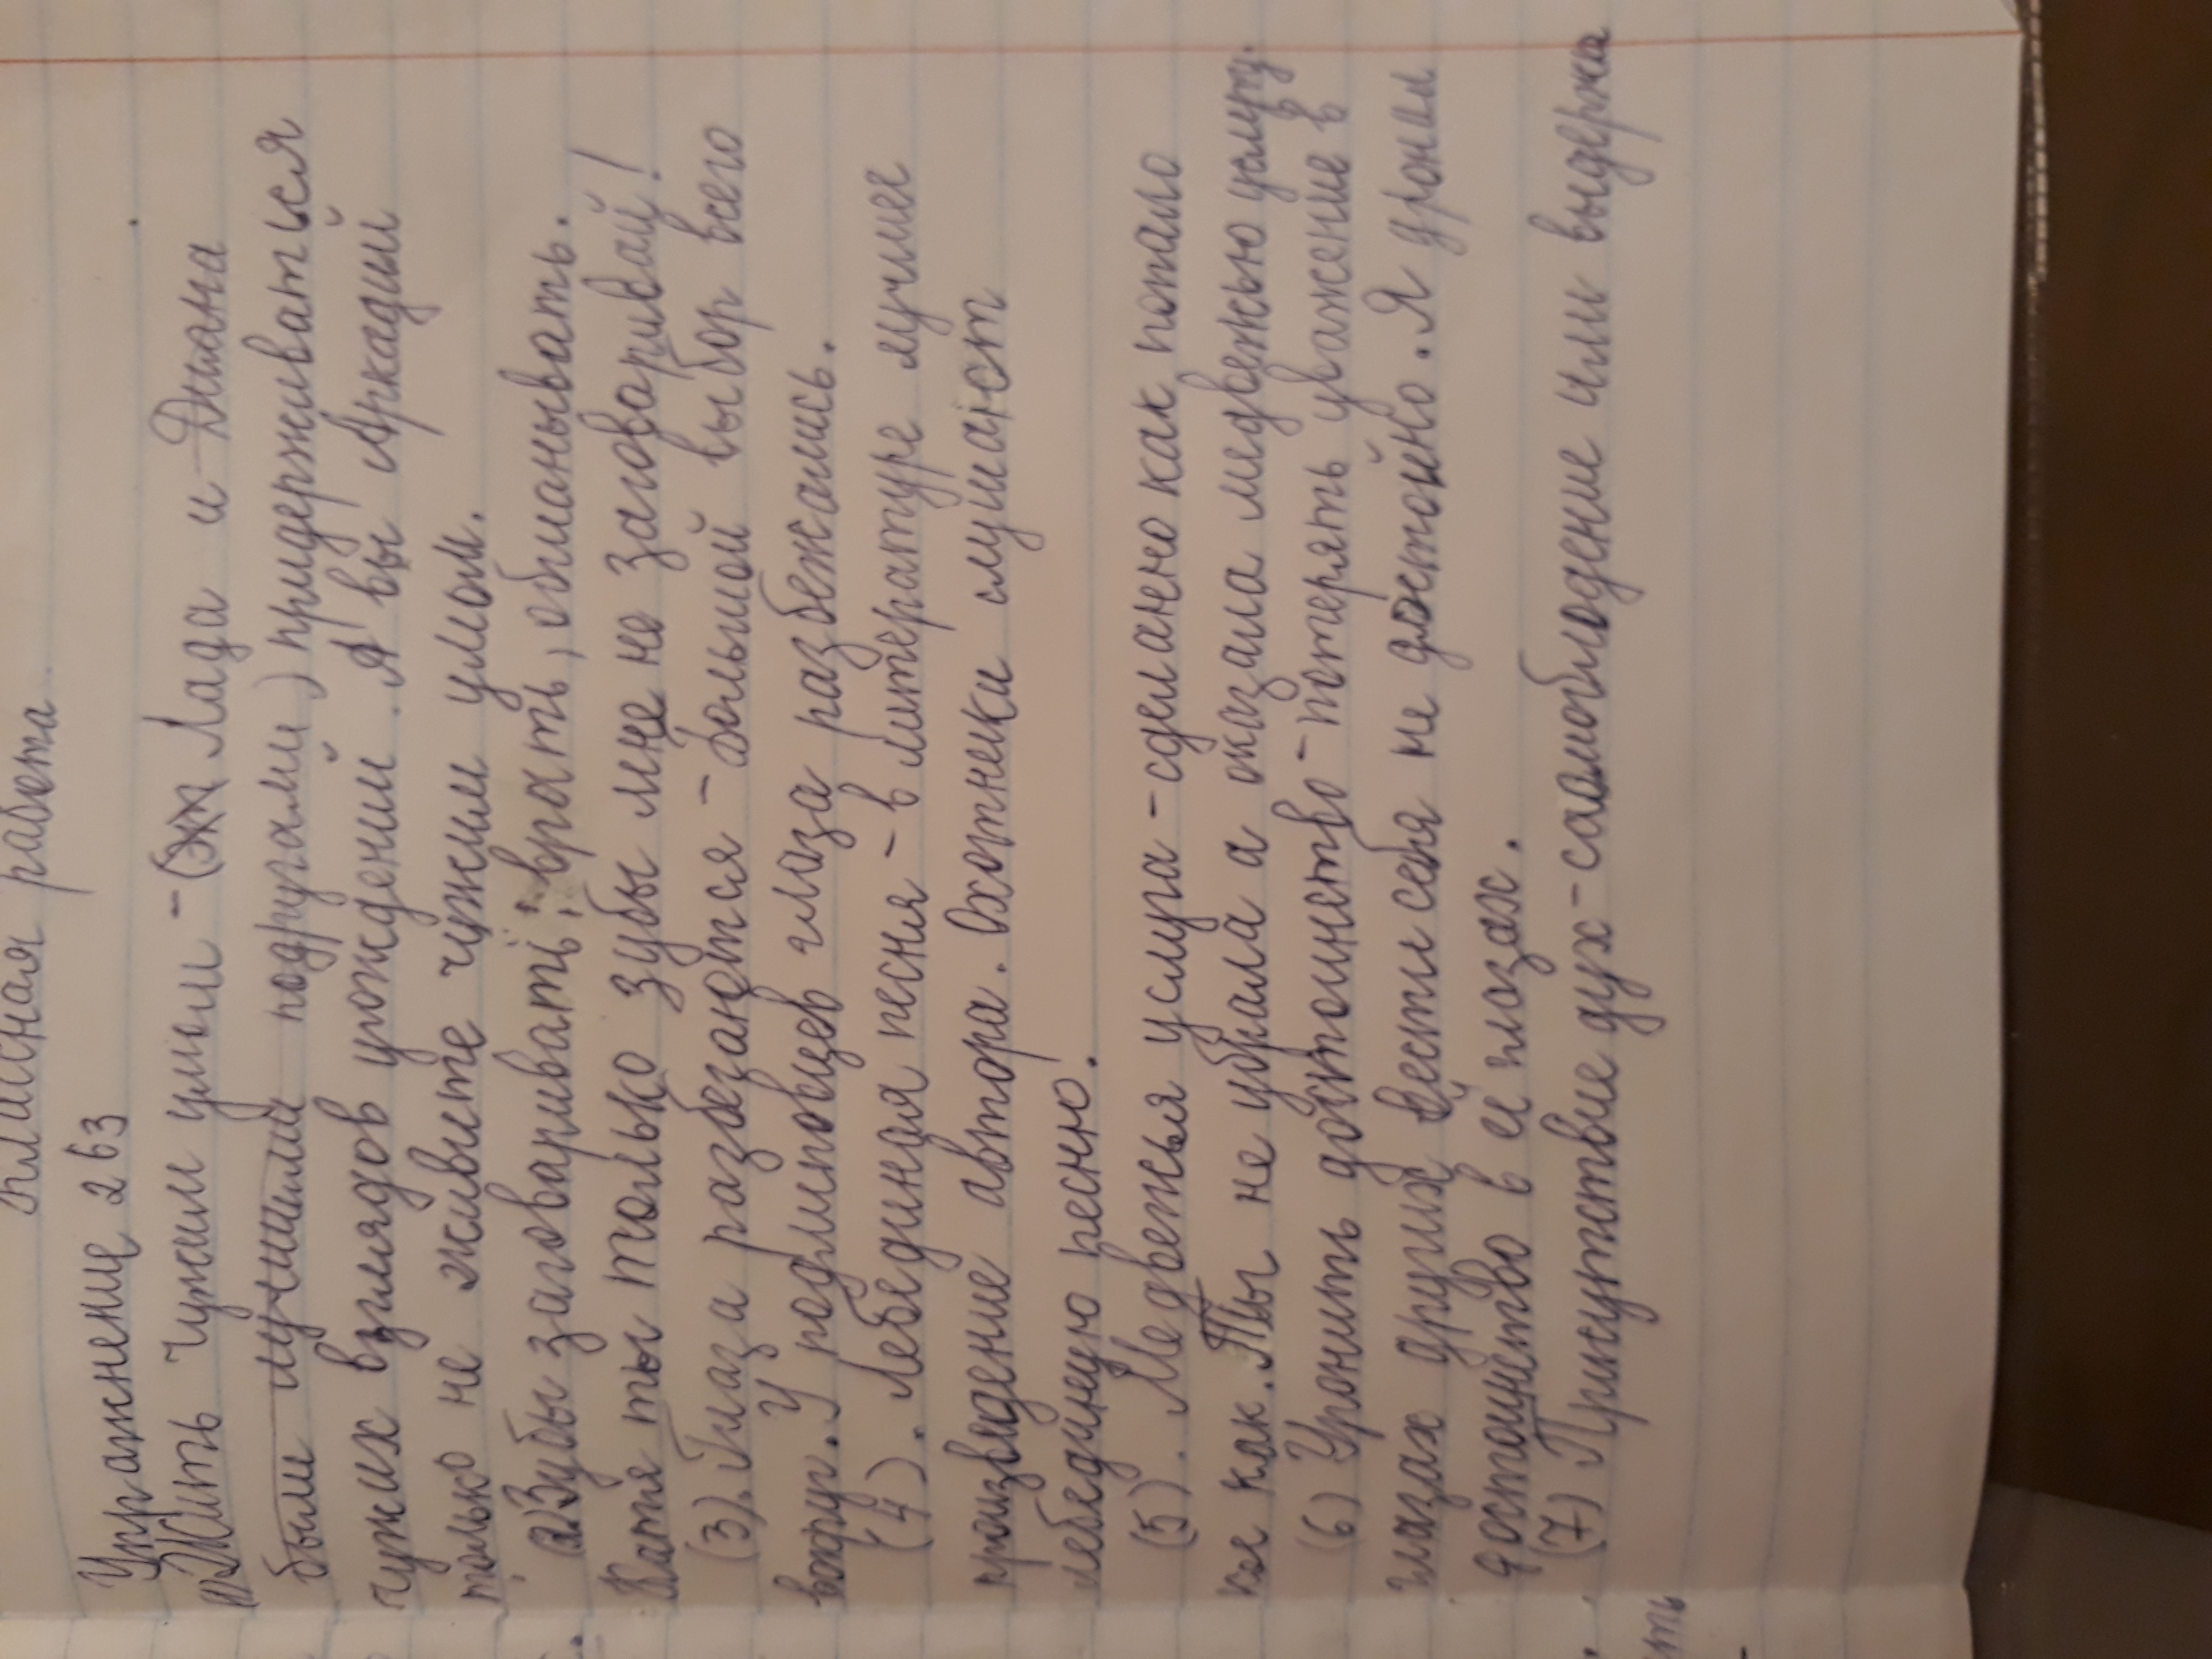 Классная работа
Упражнение 263
1) Жить чужим умом - Лада и Диана
были лучшими подругами) придерживаться
чужих взглядов упождений. А вы Аркадий
только не живите чужим умом.
2) Зубы заговаривать, врать, обманывать.
Катя ты только зубы мне не заговоривай!
(3). Глаза разбегаются - большой выбор всего
вокруг. У подлиповцев глаза разбежались.
(4). Лебединая песня - в литературе лучшее
произведение автора. Охотнеки слушают
лебединую песню.
(5). Медвежья услуга - сделанно как попало
кое как. Ты не убрала а оказала медвежью услугу.
(6) Уронить достоинство - потерять уважение в
глазах других вести себя не достойно. Я уронил
достоинство в её глозах.
(7) Присутствие дух - самоблюдение или выдержка
ть